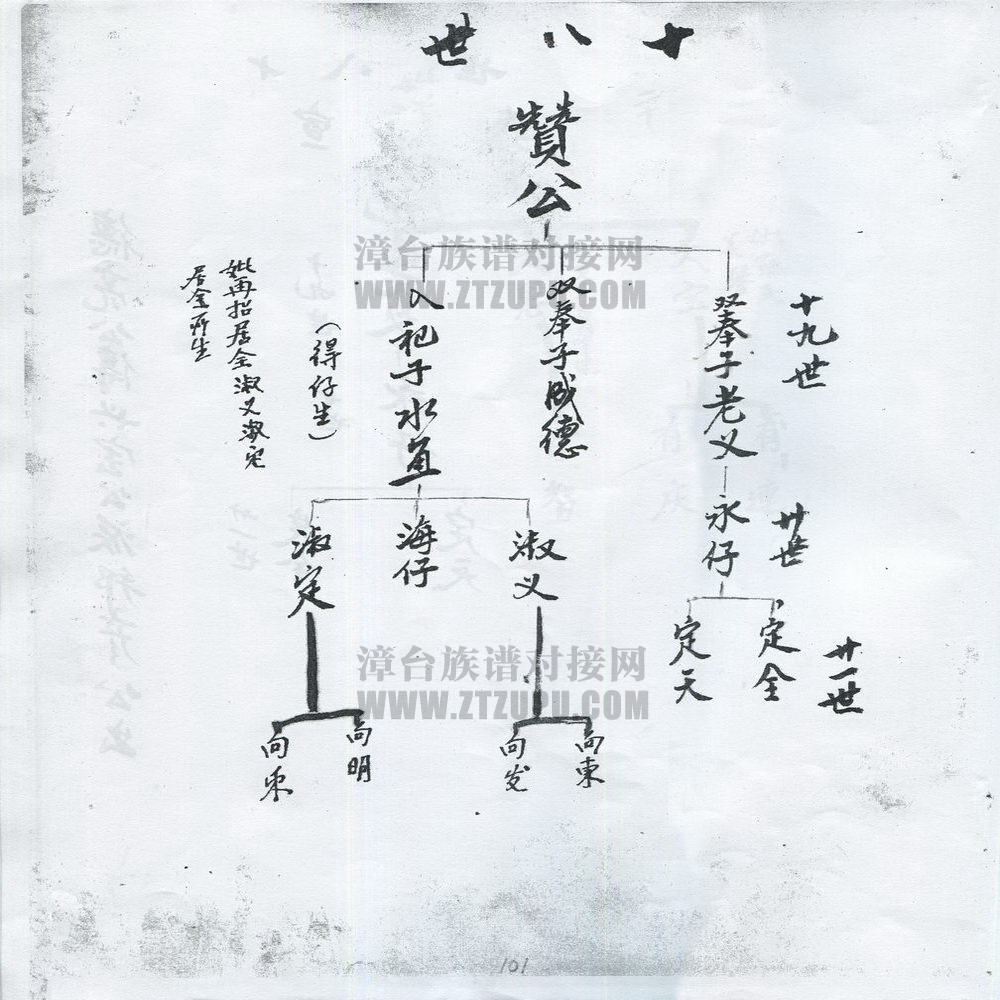 十八世
贊公
十九世
双奉子老义
双奉子成德
入祀子水
(得仔生)
妣再招居全淑义淑定
居全所生
廿世
永仔
淑义
海仔
淑定
廿一世
定全
定天
向東
向发
向明
向
漳台族谱对接网
WWW.ZTZUPU.COM
漳台族谱对接网
WWW.ZTZUPU.COM
101